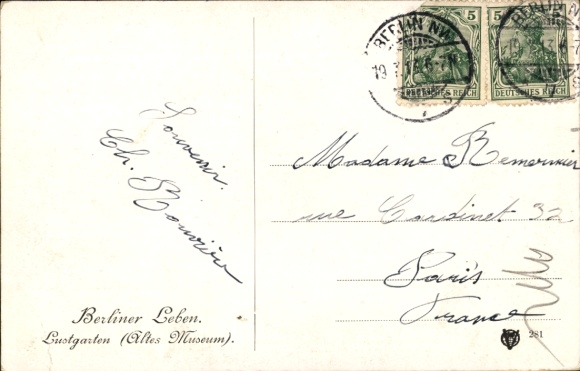 BERLIN NW
5
5
DEUTSCHES REICH
DEUTSCHES REICH
BERLIN NW
Souvenir.
Ch.
Madame
rue Cardinet 32
Paris
France
Berliner Leben.
Lustgarten (Altes Museum).
281